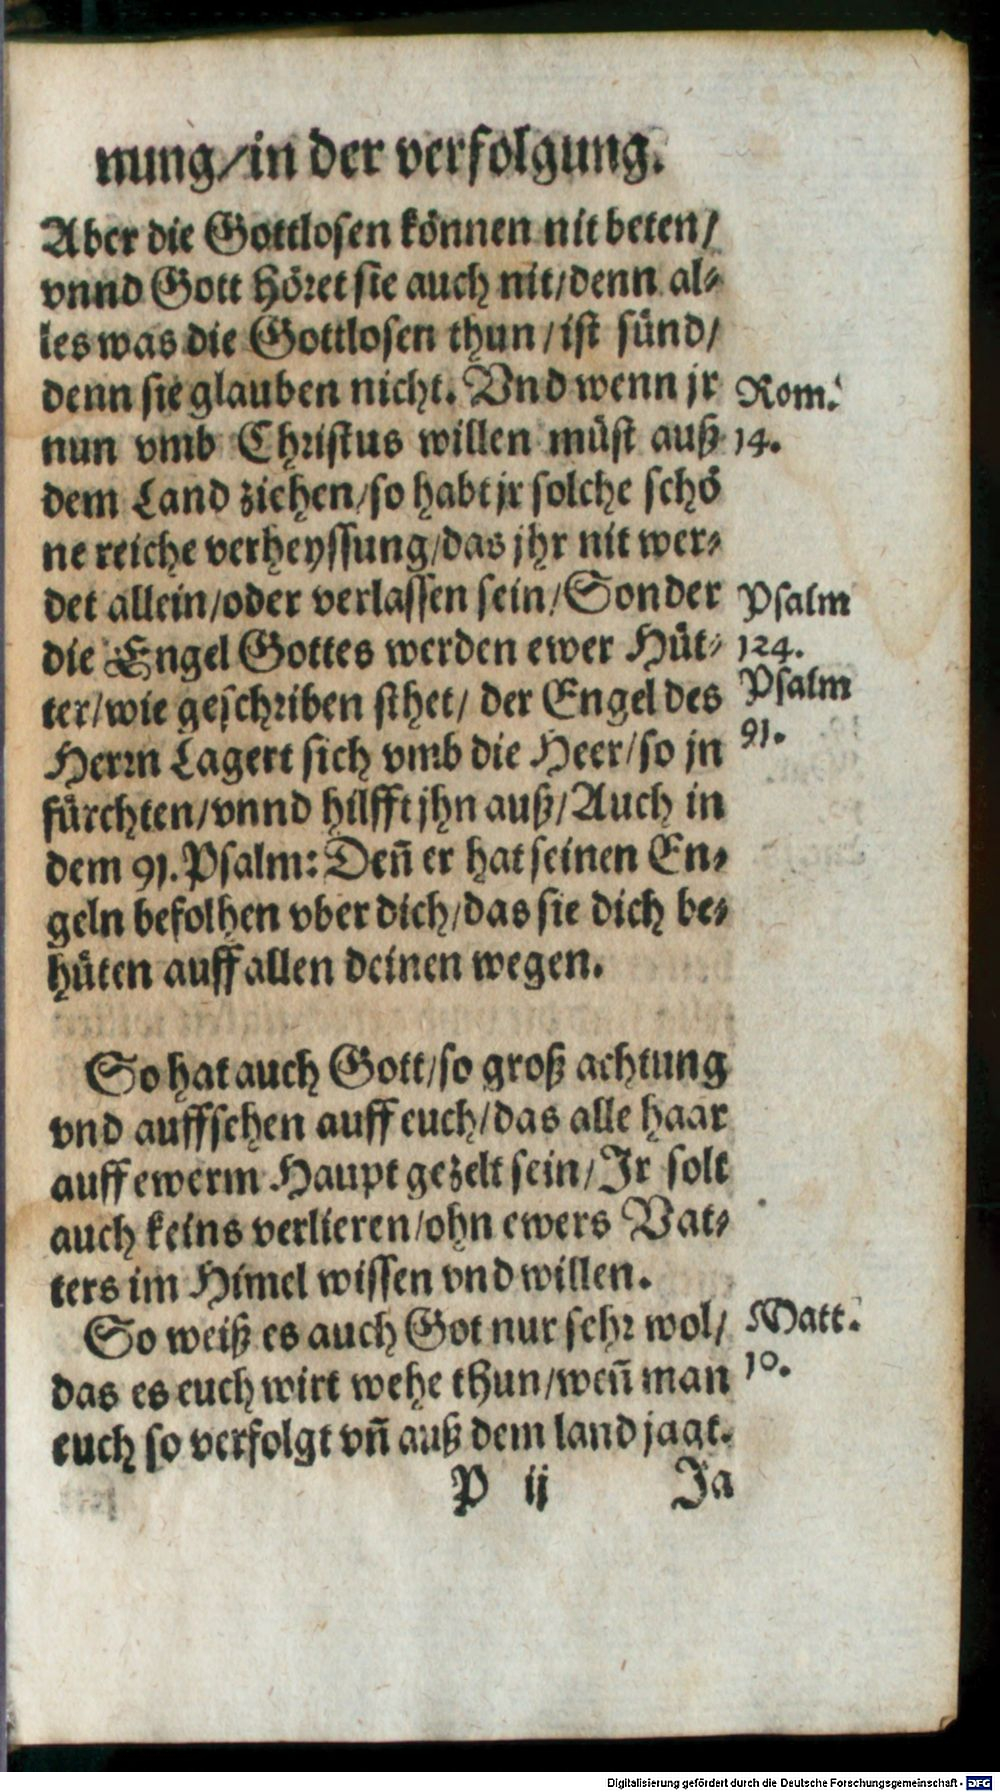 nung/in der verfolgung.
Aber die Gottlosen können nit beten/
vnnd Gott höret sie auch nit/denn al⸗
les was die Gottlosen thun/ist sünd/
denn sie glauben nicht. Vnd wenn jr
Rom.
nun vmb Christus willen müst auß
14.
dem Land ziehen/so habt jr solche schö
ne reiche verheyssung/das jhr nit wer⸗
det allein/oder verlassen sein/Sonder
Psalm
die Engel Gottes werden ewer Hüt⸗
124.
ter/wie geschriben sthet/ der Engel des
Psalm
Herrn Lagert sich vmb die Heer/so jn
91.
fürchten/vnnd hilfft jhn auß/Auch in
dem 91. Psalm: Deñ er hat seinen En⸗
geln befolhen vber dich/das sie dich be⸗
hüten auff allen deinen wegen.
So hat auch Gott/so groß achtung
vnd auffsehen auff euch/das alle haar
auff ewerm Haupt gezelt sein/Jr solt
auch keins verlieren/ohn ewers Vat⸗
ters im Himel wissen vnd willen.
So weiß es auch Got nur sehr wol/
Matt.
das es euch wirt wehe thun/weñ man
10.
euch so verfolgt vñ auß dem land jagt.
P ij Ja
Digitalisierung gefördert durch die Deutsche Forschungsgemeinschaft - DFG